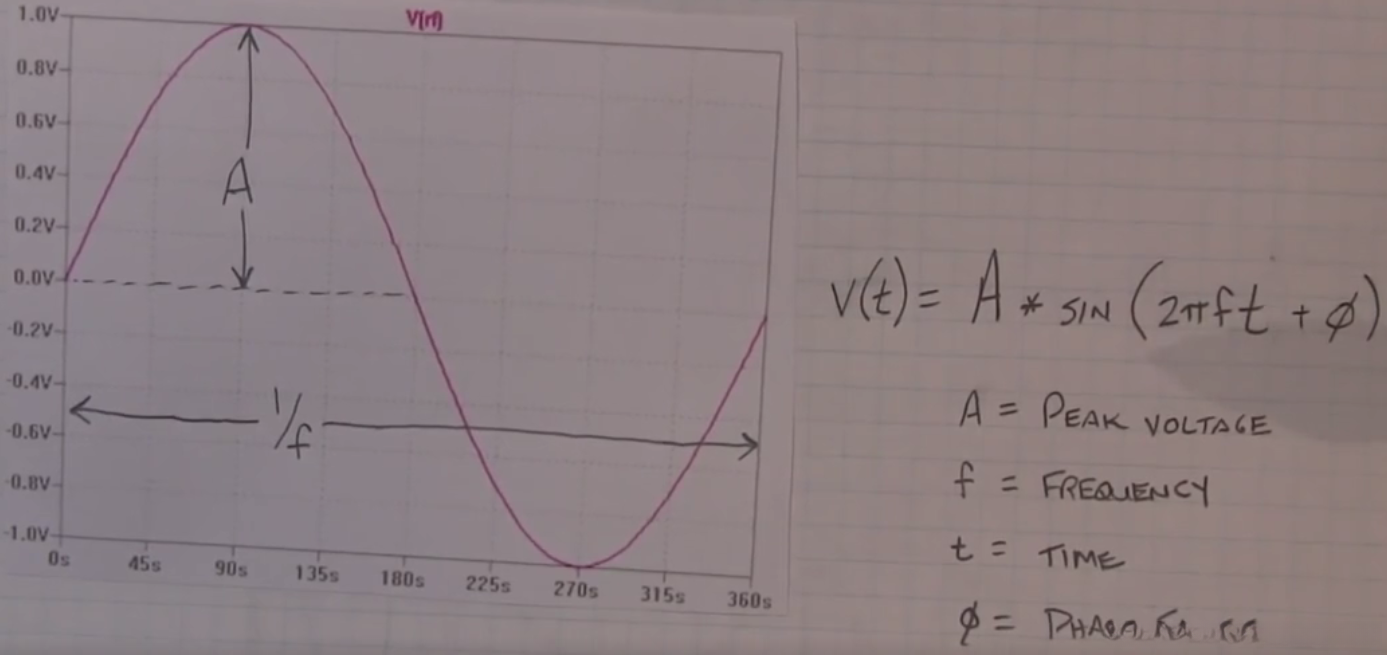 V(rf)
1.0V
0.8V
0.6V
0.4V
0.2V
0.0V
-0.2V
-0.4V
-0.6V
-0.8V
-1.0V
0s 45s 90s 135s 180s 225s 270s 315s 360s
A
1/f
V(t) = A * SIN (2πft + φ)
A = PEAK VOLTAGE
f = FREQUENCY
t = TIME
φ =